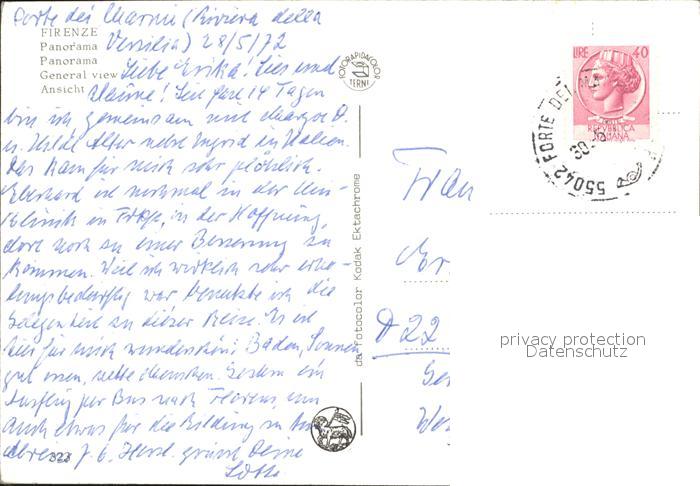 Forte dei Marmi (Riviera della
FIRENZE
Panorama
Panorama
General view
Ansicht
Versilia) 28/5/72
Liebe Erika! Lies und
staune! Seit fast 14 Tagen
bin ich gemeinsam mit Margot O.
u. Hilde Alter nebst Ingrid in Italien.
Das kam für mich sehr plötzlich.
Ekkehard ist nochmal in der
klinik in in der Hoffnung,
dort noch zu einer Besserung zu
kommen. Weil ich wirklich sehr erho-
lungsbedürftig war benutzte ich die
Gelegenheit zu dieser Reise. Es ist
hier für mich wunderschön: Baden, Sonnen
gut essen, nette Menschen. Gestern ein
Ausflug per Bus nach Florenz, um
auch etwas für die Bildung zu
Herzl. grüsst Deine
Lotte
323
FOTORAPIDACOLOR
TERNI
da Fotocolor Kodak Ektachrome
LIRE 40
REPVBBLICA
ITALIANA
55042 FORTE DEI MA
30.
Frau
Er
D 22
privacy protection
Datenschutz